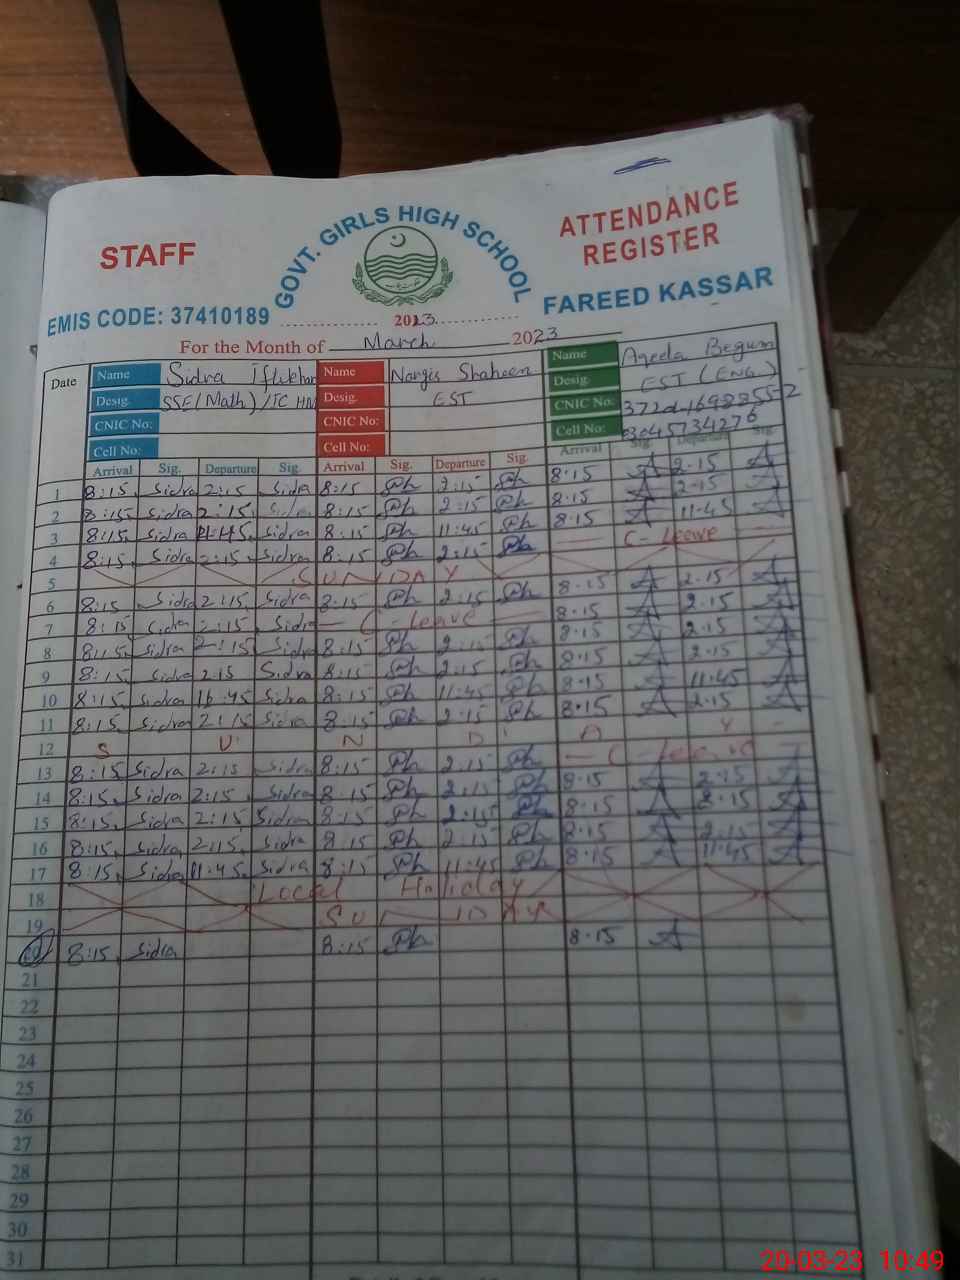 GOVT. GIRLS HIGH SCHOOL
STAFF
ATTENDANCE
REGISTER
EMIS CODE: 37410189
FAREED KASSAR
2013
For the Month of March 2023
Date Name Sidra Iftikhar Name Nargis Shaheen Name Aqeela Begum
Desig. SSE(Math)/IC HM Desig. EST Desig. EST (ENG.)
CNIC No: CNIC No: CNIC No:
Cell No: Cell No: Cell No: 03045734276
Arrival Sig. Departure Sig. Arrival Sig. Departure Sig. Arrival Sig. Departure Sig.
1 8:15 Sidra 2:15 Sidra 8:15 2:15 8.15 2.15
2 8:15 Sidra 2:15 Sidra 8:15 2:15 8.15 2.15
3 8:15 Sidra 11:45 Sidra 8:15 11:45 8.15 11.45
4 8:15 Sidra 2:15 Sidra 8:15 2:15 C-Leave
5 SUNDAY
6 8:15 Sidra 2:15 Sidra 8:15 2:15 8.15 2.15
7 8:15 Sidra 2:15 Sidra C-leave 8.15 2.15
8 8:15 Sidra 2:15 Sidra 8:15 2:15 8.15 2.15
9 8:15 Sidra 2:15 Sidra 8:15 2:15 8.15 2.15
10 8:15 Sidra Sidra 8:15 11:45 8.15 11.45
11 8:15 Sidra 2:15 Sidra 8:15 2:15 8.15 2.15
12 S U N D A Y
13 8:15 Sidra 2:15 Sidra 8:15 2:15 C-leave
14 8:15 Sidra 2:15 Sidra 8:15 2:15 8.15 2.15
15 8:15 Sidra 2:15 Sidra 8:15 2:15 8.15 2.15
16 8:15 Sidra 2:15 Sidra 8:15 2:15 8.15 2.15
17 8:15 Sidra 11:45 Sidra 8:15 11:45 8.15 11.45
18 Local Holiday
19 SUNDAY
20 8:15 Sidra 8:15 8.15
21
22
23
24
25
26
27
28
29
30
31
20-03-23 10:49